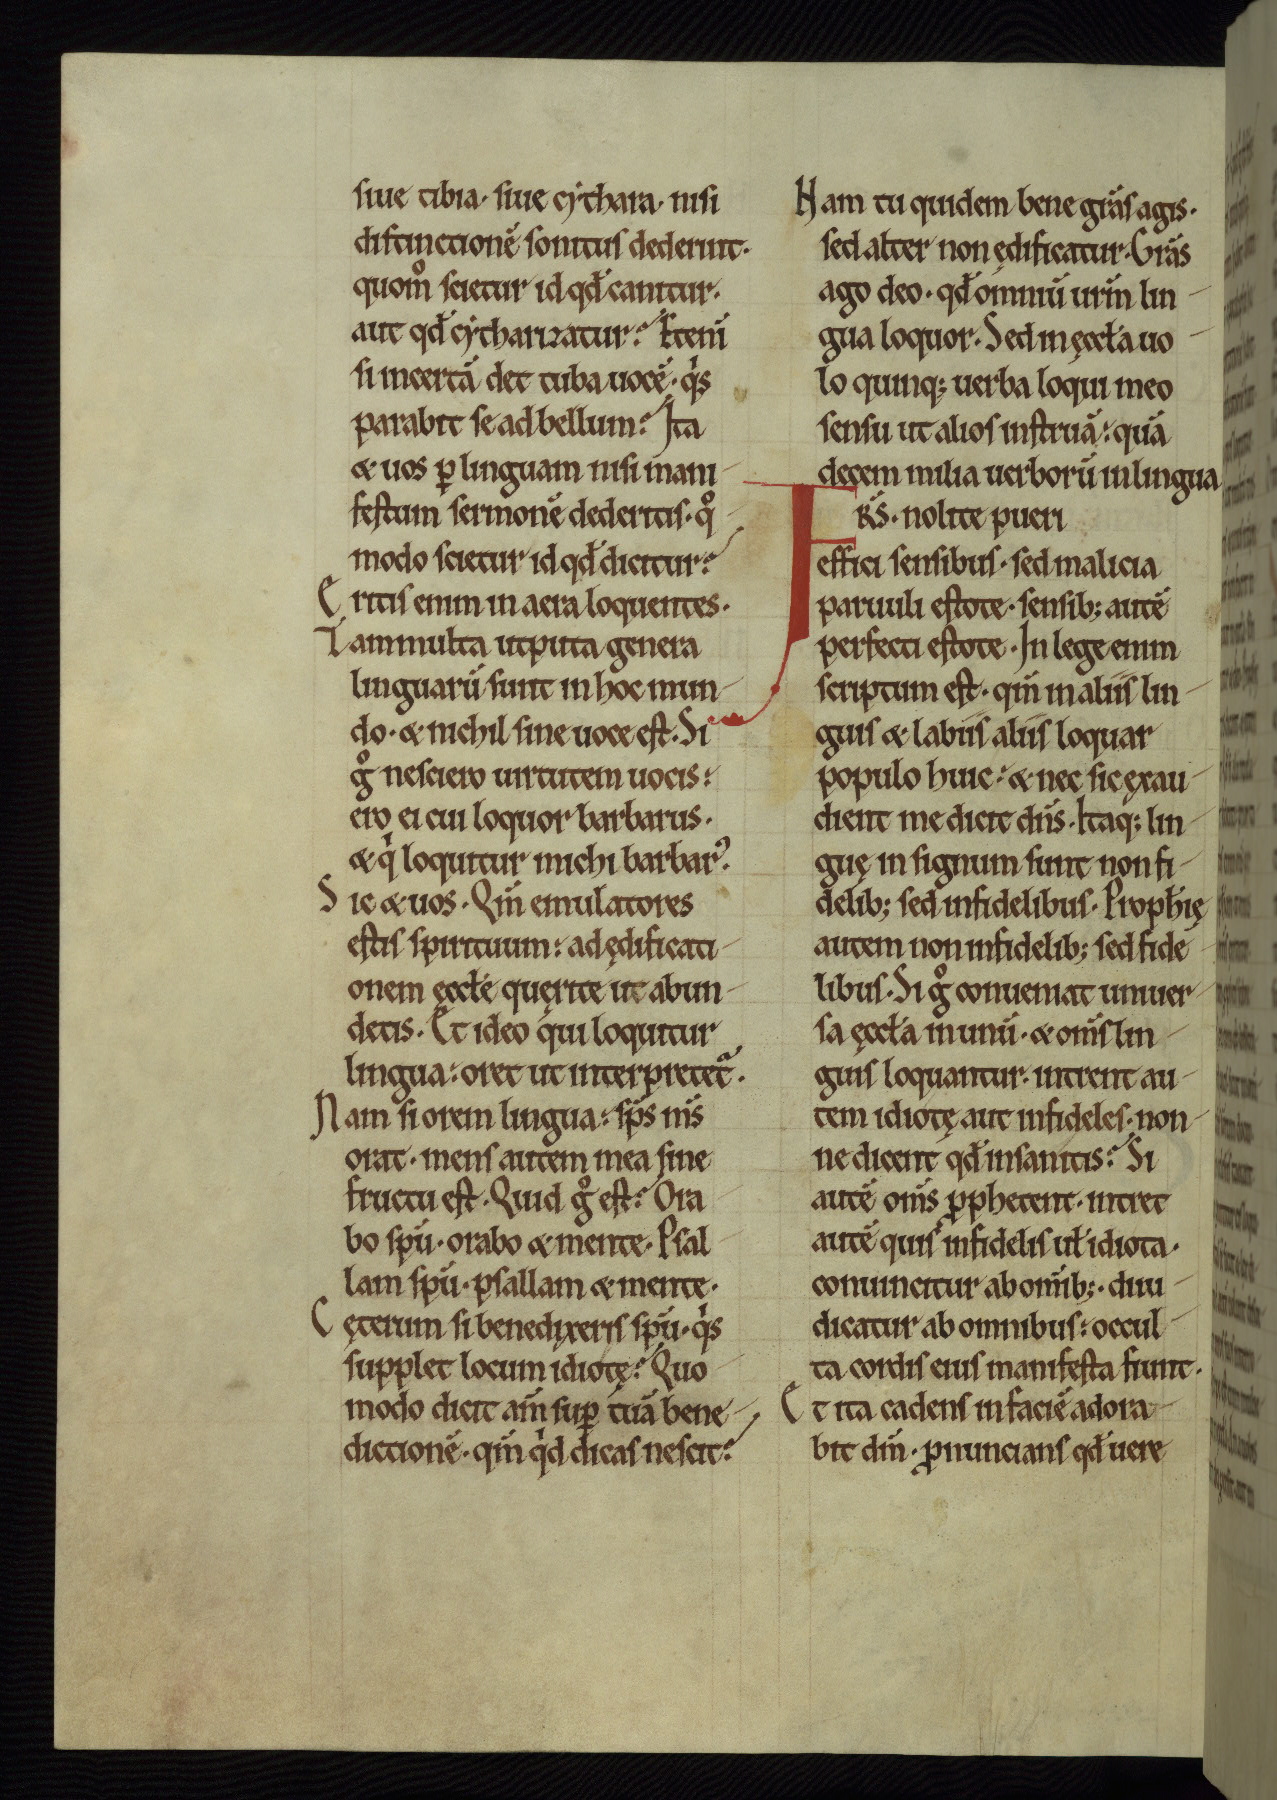 siue tibia· siue cẏthara· nisi
distinctionē sonitus dederint·
quom̊ scietur id qđ canitur·
aut qđ cẏtharizatur? Etenī
si incertā det tuba uocē· qͥs
parabit se ad bellum? Ita
& uos ꝑ linguam nisi mani-
festum sermonē dederitis· q̊-
modo scietur id qđ dicitur?
Eritis enim in aera loquentes·
Tam multa utputa genera
linguarū sunt in hoc mun-
do· & nichil sine uoce est· Si
g̊ nesciero uirtutem uocis:
ero ei cui loquor barbarus·
& qͥ loquitur michi barbarꝰ.
Sic & uos· Qm̄ emulatores
estis spirituum: ad ędificati-
onem ęccłe quęrite ut abun-
detis· Et ideo qui loquitur
lingua: oret ut interpretet᷑·
Nam si orem lingua: sp̄s m̄s
orat· mens autem mea sine
fructu est· Quid g̊ est? Ora-
bo spū· orabo & mente· Psal-
lam spū· psallam & mente·
Cęterum si benedixeris spū· qͥs
supplet locum idiotę? Quo-
modo dicit am̄ suꝑ tuā bene-
dictionē· qm̄ qͥd dicas nescit?
Nam tu quidem bene grās agis·
sed alter non ędificatur· Grās
ago deo· qđ omniū urm̄ lin-
gua loquor· Sed in ęccła uo-
lo quinq; uerba loqui meo
sensu ut alios instruā: quā
decem milia uerborū in lingua
FRS̄· nolite pueri
effici sensibus· sed malicia
paruuli estote· sensib; autē
perfecti estote· In lege enim
scriptum est· qm̄ in aliis lin-
guis & labiis aliis loquar
populo huic: & nec sic exau-
dient me dicit dn̄s· Itaq; lin-
guę in signum sunt non fi-
delib; sed infidelibus· Proph̄ię
autem non infidelib; sed fide-
libus· Si g̊ conueniat uniuer-
sa ęccła in unū· & om̄s lin-
guis loquantur· intrent au-
tem idiotę aut infideles· non-
ne dicent qđ insanitis? Si
autē om̄s ꝓphetent· intret
autē quis infidelis uł idiota·
conuincitur ab om̄ib;· diiu-
dicatur ab omnibus: occul-
ta cordis eius manifesta fiunt·
Et ita cadens in faciē adora-
bit dm̄· ꝓnuncians qđ uere